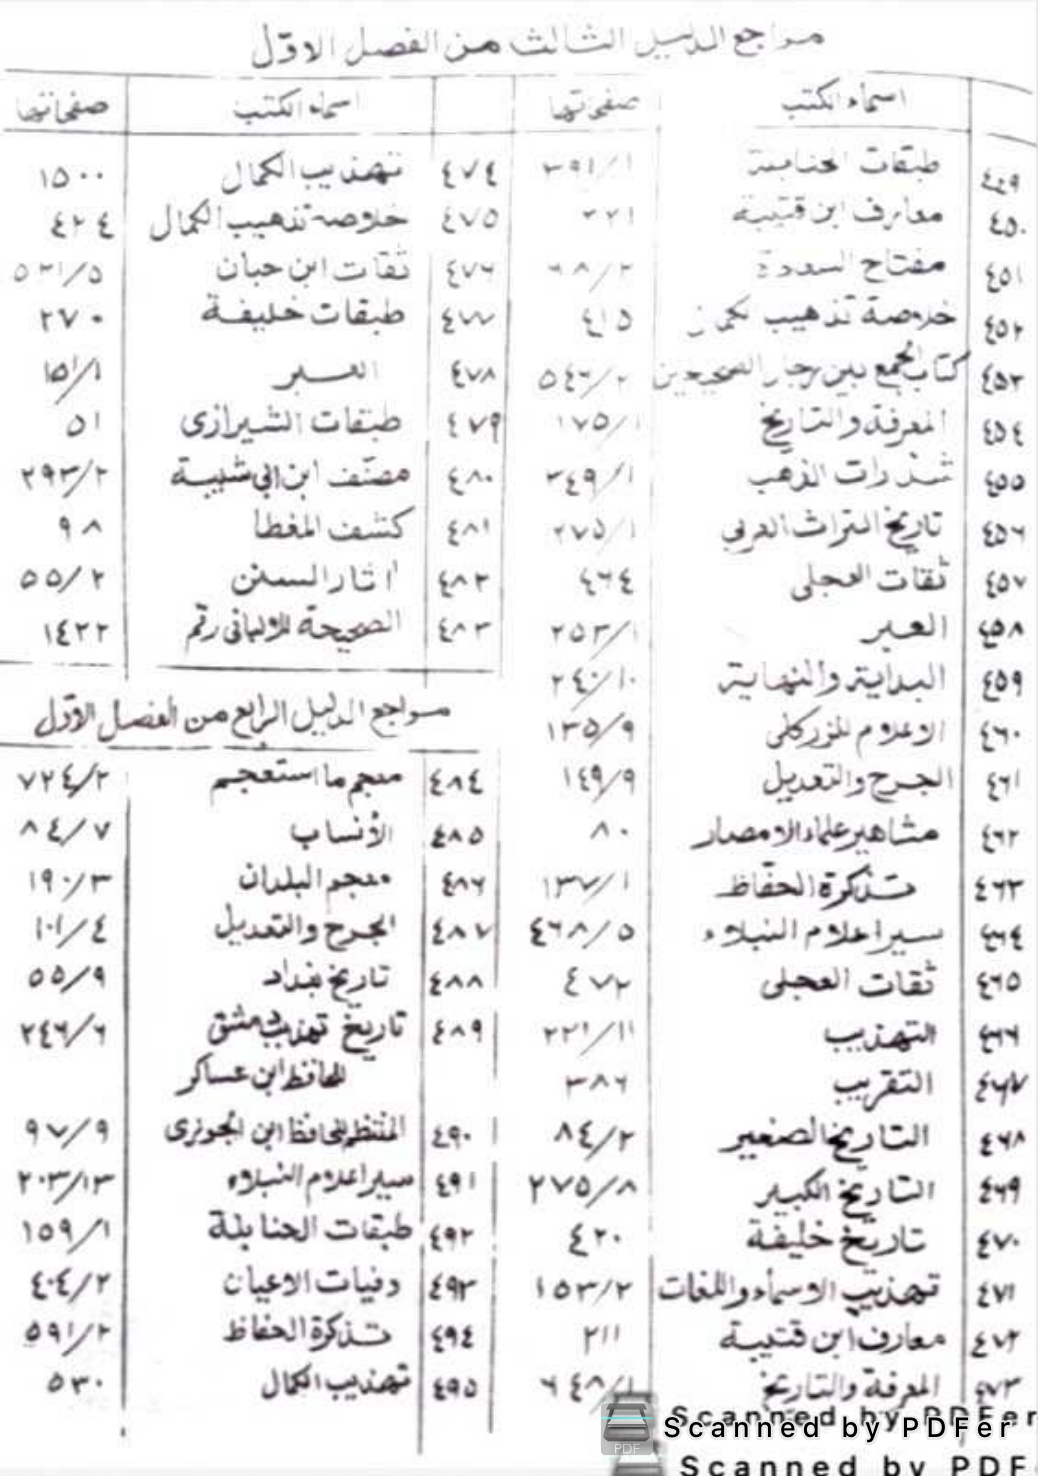 مراجع الدليل الثالث من الفصل الاوّل
اسماء الكتب صفحاتها
٤٤٩ طبقات الحنابلة ٣٩١/١
٤٥٠ معارف ابن قتيبة ٢٢١
٤٥١ مفتاح السعادة ٦٨/٢
٤٥٢ خلاصة تذهيب الكمال ٤١٥
٤٥٣ كتاب الجمع بين رجال الصحيحين ٥٤٦/٢
٤٥٤ المعرفة والتاريخ ١٧٥/١
٤٥٥ شذرات الذهب ٣٤٩/١
٤٥٦ تاريخ التراث العربي ٢٧٥/١
٤٥٧ ثقات العجلى ٤٦٤
٤٥٨ العبر ٢٥٣/١
٤٥٩ البداية والنهاية ٢٤٠/١٠
٤٦٠ الاعلام للزركلى ١٣٥/٩
٤٦١ الجرح والتعديل ١٤٩/٩
٤٦٢ مشاهير علماء الامصار ٨٠
٤٦٣ تذكرة الحفاظ ١٣٧/١
٤٦٤ سير اعلام النبلاء ٤٦٨/٥
٤٦٥ ثقات العجلى ٤٧٢
٤٦٦ التهذيب ٢٢١/١١
٤٦٧ التقريب ٣٨٦
٤٦٨ التاريخ الصغير ٨٤/٢
٤٦٩ التاريخ الكبير ٢٧٥/٨
٤٧٠ تاريخ خليفة ٤٢٠
٤٧١ تهذيب الاسماء واللغات ١٥٣/٢
٤٧٢ معارف ابن قتيبة ٢١١
٤٧٣ المعرفة والتاريخ ٦٤٨/١
اسماء الكتب صفحاتها
٤٧٤ تهذيب الكمال ١٥٠٠
٤٧٥ خلاصة تذهيب الكمال ٤٢٤
٤٧٦ ثقات ابن حبان ٥٢١/٥
٤٧٧ طبقات خليفة ٢٧٠
٤٧٨ العبر ١٥١/١
٤٧٩ طبقات الشيرازى ٥١
٤٨٠ مصنّف ابن ابي شيبة ٢٩٣/٢
٤٨١ كشف المغطا ٩٨
٤٨٢ اثار السنن ٥٥/٢
٤٨٣ الصحيحة للالبانى رقم ١٤٢٢
مراجع الدليل الرابع من الفصل الاوّل
٤٨٤ معجم ما استعجم ٧٢٤/٢
٤٨٥ الأنساب ٨٤/٧
٤٨٦ معجم البلدان ١٩٠/٣
٤٨٧ الجرح والتعديل ١٠١/٤
٤٨٨ تاريخ بغداد ٥٥/٩
٤٨٩ تاريخ تهذيب دمشق ٢٤٦/٦
للحافظ ابن عساكر
٤٩٠ المنتظم للحافظ ابن الجوزى ٩٧/٩
٤٩١ سير اعلام النبلاء ٢٠٣/١٣
٤٩٢ طبقات الحنابلة ١٥٩/١
٤٩٣ وفيات الاعيان ٤٠٤/٢
٤٩٤ تذكرة الحفاظ ٥٩١/٢
٤٩٥ تهذيب الكمال ٥٣٠
Scanned by PDFer
Scanned by PDFer
PDF
Scanned by PDF